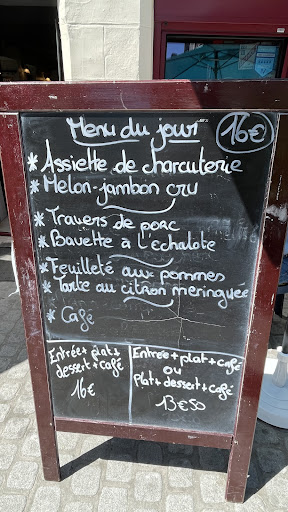 Menu du jour
16€
* Assiette de charcuterie
* Melon-jambon cru
* Travers de porc
* Bavette à l'échalote
* Feuilleté aux pommes
* Tarte au citron meringuée
* Café
Entrée + plat +
dessert + café
16€
Entrée + plat + café
ou
Plat + dessert + café
13€50